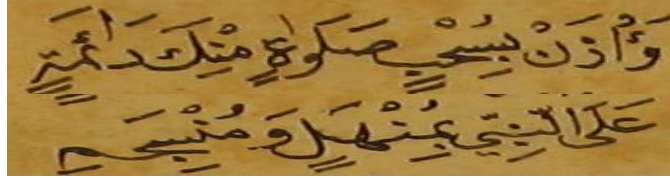 وَأْذَنْ بِسُحْبِ صَلٰوةٍ مِنْكَ دَائِمَةٍ
عَلَى النَّبِيِّ بِمُنْهَلٍ وَمُنْسَجِمِ